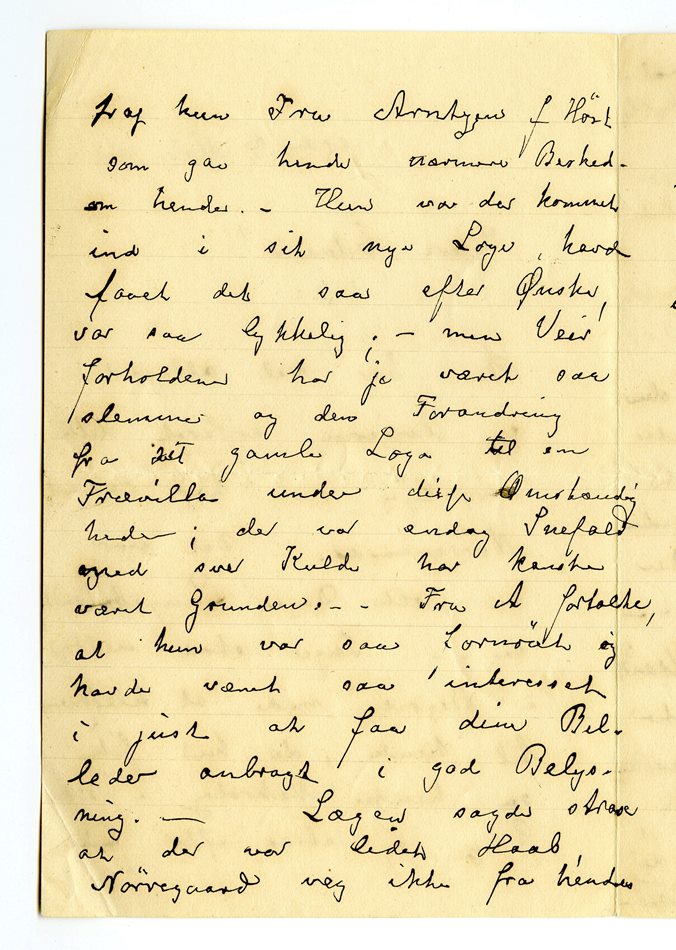 traf hun Fru Arntzen f Höst
som gav hende nærmere Besked
om hende. – Hun var der kommet
ind i sit nye Loge, havde
faaet det saa efter Ønske,
var saa lykkelig; – men Veir
forholdene har jo været saa
slemme og den Forandring
fra det gamle Loge til en
Trævilla under disse Omstændig
heder; der var endog Snefald
med svær Kulde har kanske
været Grunden. – – Fru A fortalte,
at hun var saa fornöiet og
havde været saa interesset
i just at faa dine Bil-
leder anbragt i god Belys-
ning. – Lægen sagde strax
at der var lidet Haab
Nörregaard veg ikke fra hendes